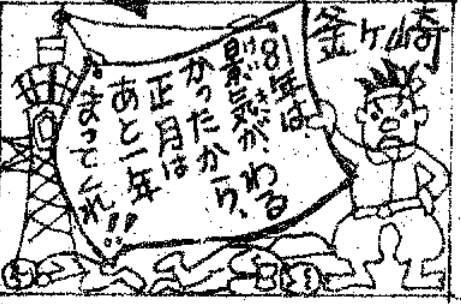 釜ヶ崎
81年は
景気が、わる
かったから、
正月は
あと一年
まってくれ!!